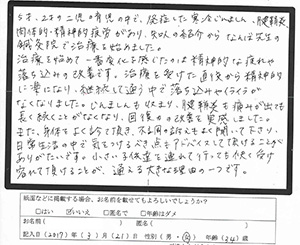 5才、2才の二児の育児の中で、発症した寒冷じんましん、腱鞘炎
肉体的・精神的疲労があり、知人の紹介から なんば先生の
鍼灸院で治療を始めました。
治療を始めて一番変化を感じたのは精神的な疲れや
落ち込みの改善です。治療を受けた直後から精神的
に楽になり、継続して通う中で落ち込みやイライラが
なくなりました。じんましんも収まり、腱鞘炎も痛みが出ても
長く続くことがなくなり、回復力の改善を実感しました。
また、身体をよく診て頂き、不調の訴えもよく聞いて下さり、
日常生活の中で気をつけるべき点もアドバイスして頂けることが
ありがたいです。小さい子供達を連れて行っても快く受け
容れて頂けることが、通える大きな理由の一つです。
紙面などに掲載する場合、お名前を載せてもよろしいでしょうか?
□はい ☑いいえ □匿名で □年齢はダメ
お名前( )匿名( )
記入日(2017)年(3)月(21)日 性別(男・女) 年齢(34)歳